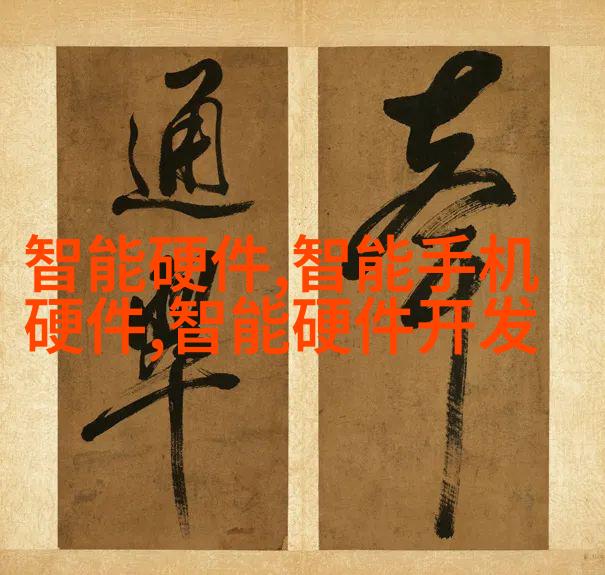 智能硬件,智能手机
硬件,智能硬件开发
通